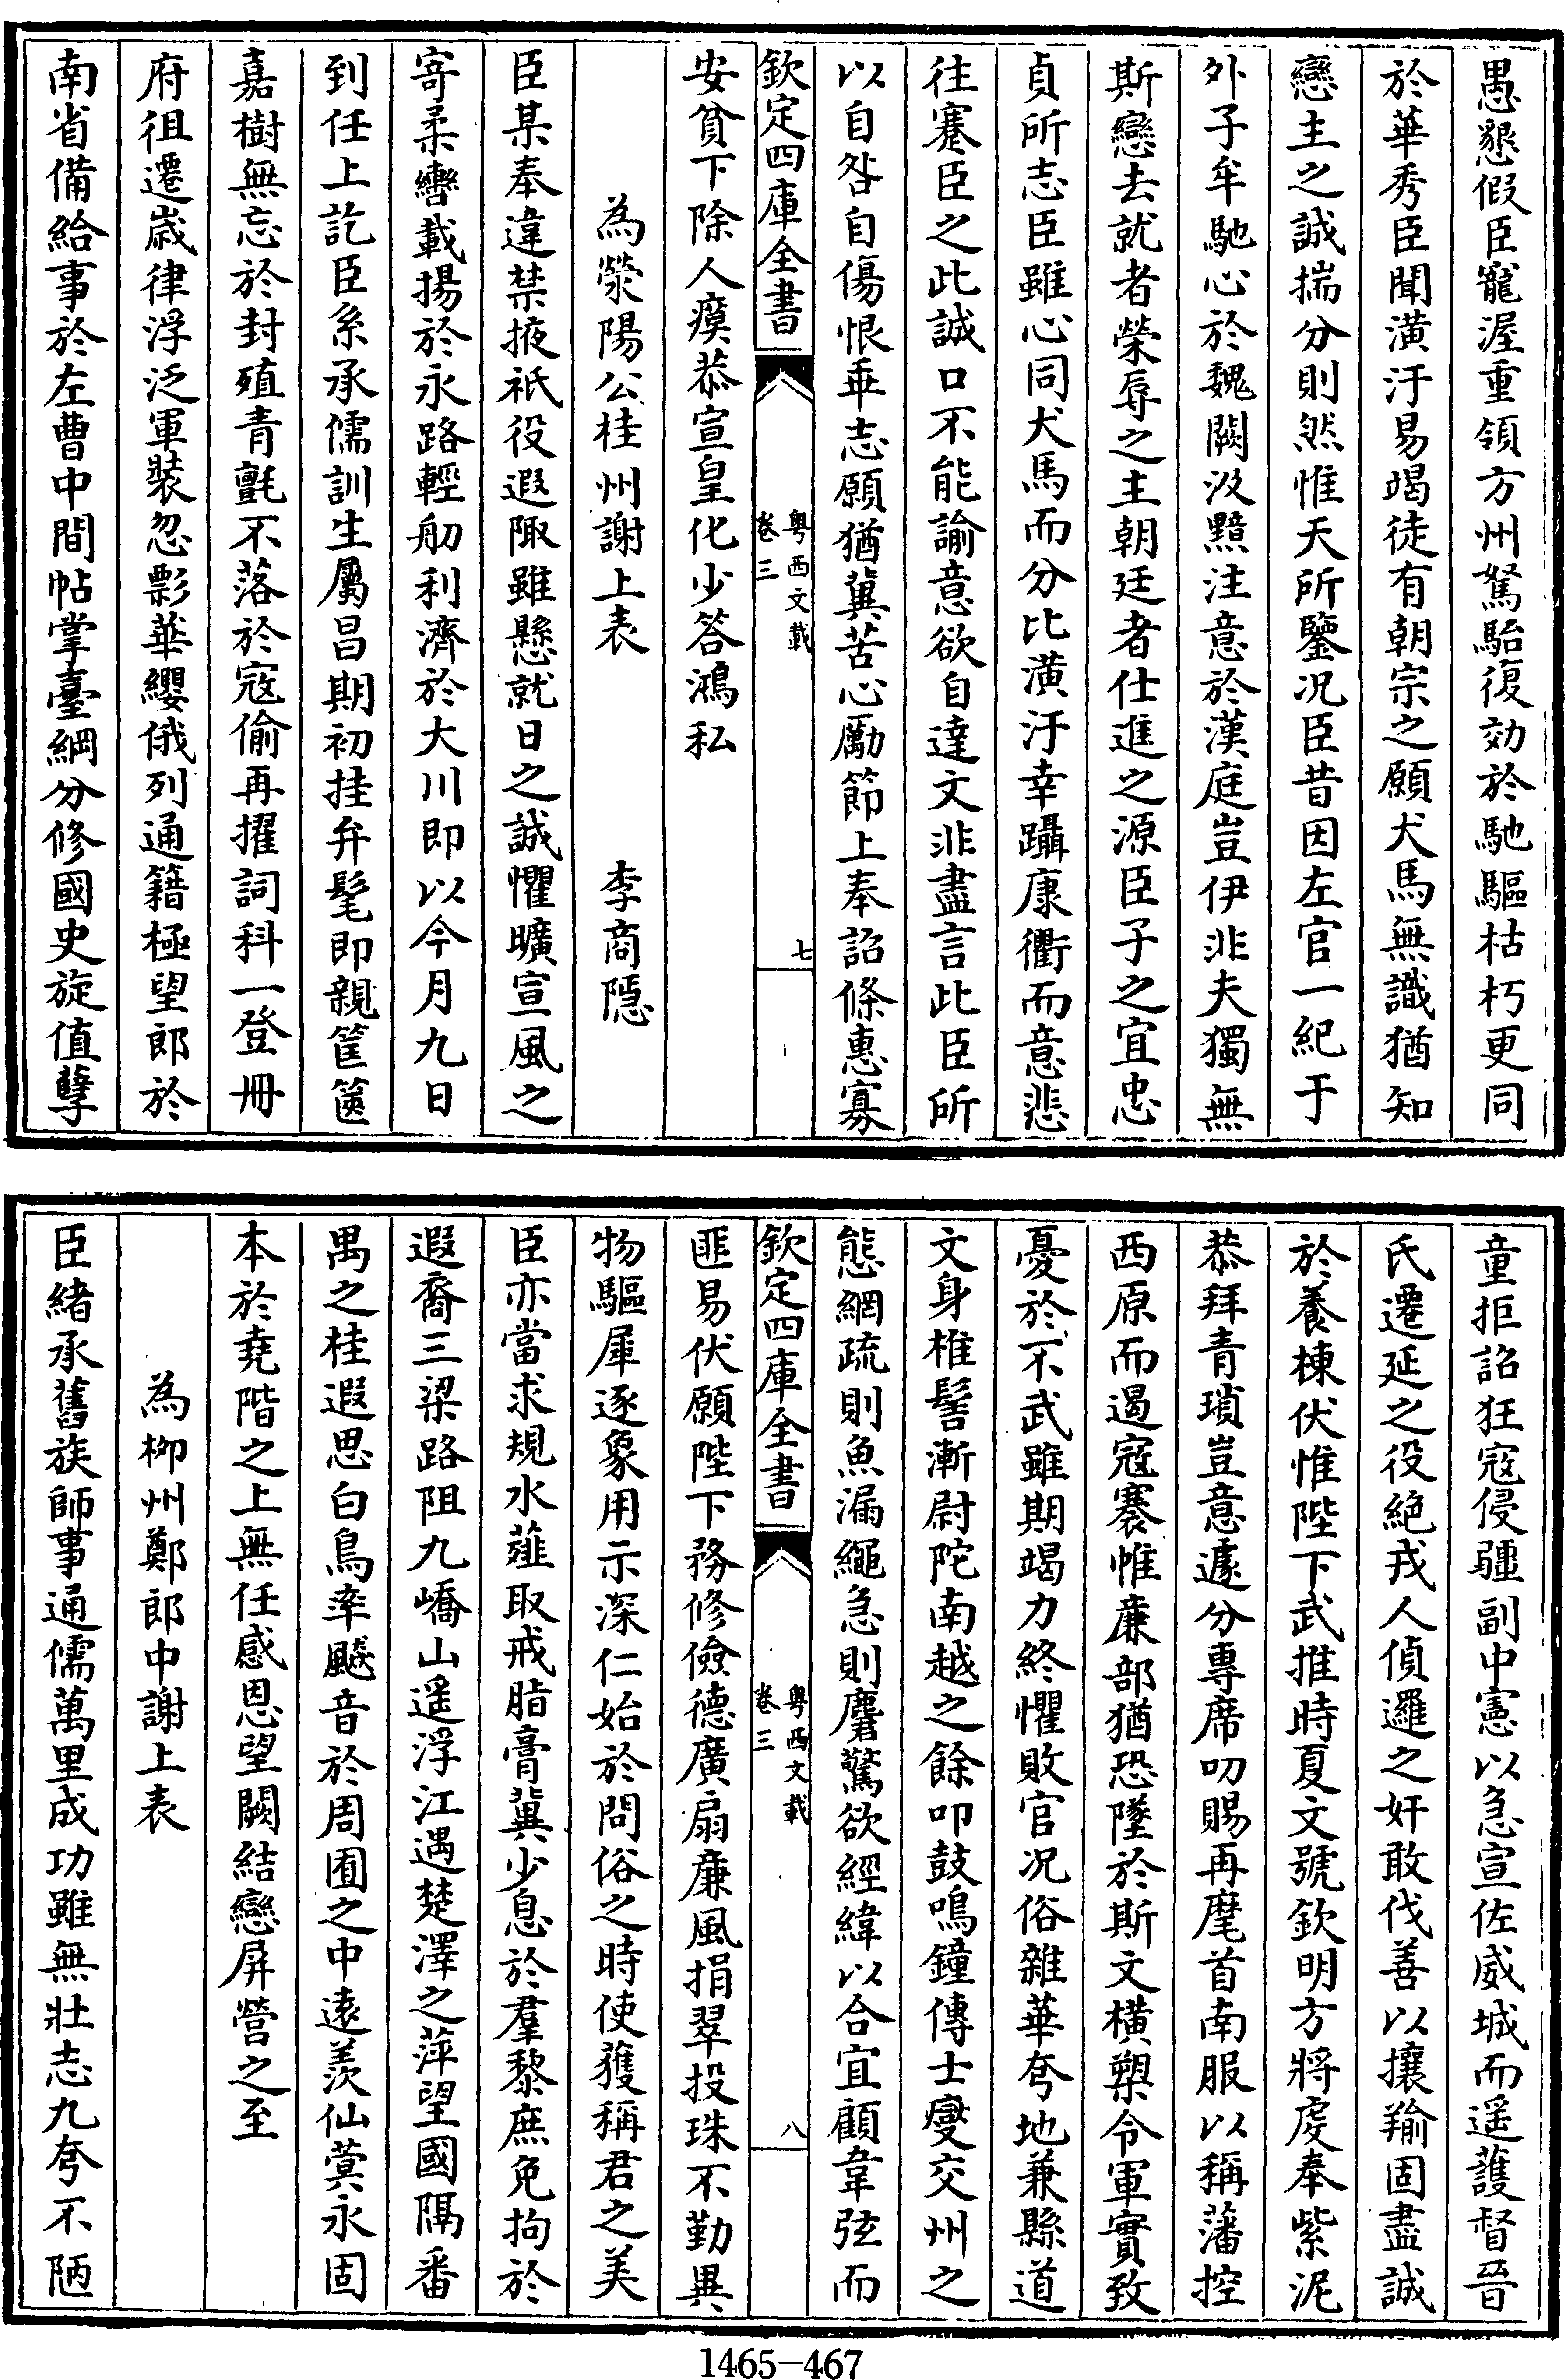 愚懇假臣寵渥重領方州駑駘復効於馳驅枯朽更同
於華秀臣聞潢汙易竭徒有朝宗之願犬馬無識猶知
戀主之誠揣分則然惟天所鑒况臣昔因左官一紀于
外子牟馳心於魏闕汲黯注意於漢庭豈伊非夫獨無
斯戀去就者榮辱之主朝廷者仕進之源臣子之宜忠
貞所志臣雖心同犬馬而分比潢汙幸躡康衢而意悲
往蹇臣之此誠口不能諭意欲自達文非盡言此臣所
以自咎自傷恨乖志願猶冀苦心勵節上奉詔條惠寡
欽定四庫全書
粤西文載
卷三
七
安貧下除人瘼恭宣皇化少答鴻私
為滎陽公桂州謝上表 李商隠
臣某奉違禁掖祇役遐陬雖懸就日之誠懼曠宣風之
寄柔轡載揚於永路輕舠利濟於大川即以今月九日
到任上訖臣系承儒訓生屬昌期初挂弁髦即親筐篋
嘉樹無忘於封殖青氈不落於寇偷再擢詞科一登冊
府徂遷歲律浮泛軍裝忽彯華纓俄列通籍極望郎於
南省備給事於左曹中間帖掌臺綱分修國史旋值孽
童拒詔狂寇侵疆副中憲以急宣佐威城而遥護督晉
氏遷延之役絶戎人偵邏之奸敢伐善以攘羭固盡誠
於養棟伏惟陛下武推時夏文號欽明方將虔奉紫泥
恭拜青瑣豈意遽分專席叨賜再麾首南服以稱藩控
西原而遏寇褰帷亷部猶恐墜於斯文橫槊令軍實致
憂於不武雖期竭力終懼敗官况俗雜華夸地兼縣道
文身椎髻漸尉陀南越之餘叩鼓鳴鐘傳士燮交州之
態網疏則魚漏繩急則麏驚欲經緯以合宜顧韋弦而
欽定四庫全書
粤西文載
卷三
八
匪易伏願陛下務修儉德廣扇亷風捐翠投珠不勤異
物驅犀逐象用示深仁始於問俗之時使獲稱君之美
臣亦當求規水薤取戒脂膏冀少息於羣黎庶免拘於
遐裔三梁路阻九嶠山遥浮江遇楚澤之萍望國隔番
禺之桂遐思白鳥率颷音於周囿之中遠羨仙蓂永固
本於堯階之上無任感恩望闕結戀屏營之至
為柳州鄭郎中謝上表
臣緒承舊族師事通儒萬里成功雖無壯志九夸不陋
1465-467